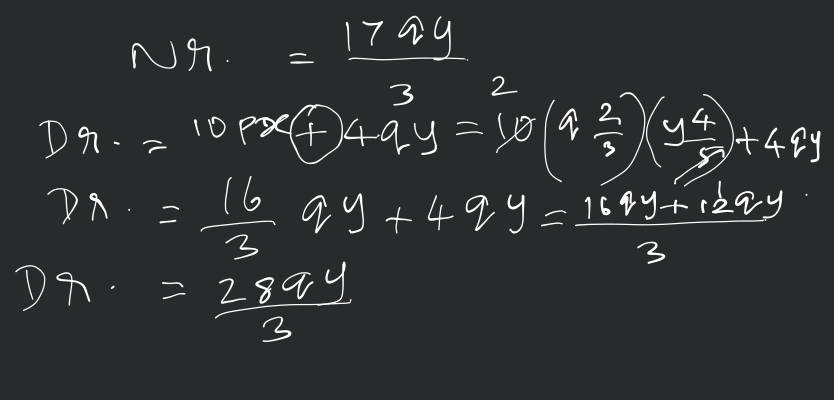 Nr. = 17qy/3
Dr. = 10px + 4qy = 10 2 (q 2/3)(y 4/5) + 4qy
Dr. = 16/3 qy + 4qy = 16qy + 12qy/3
Dr. = 28qy/3